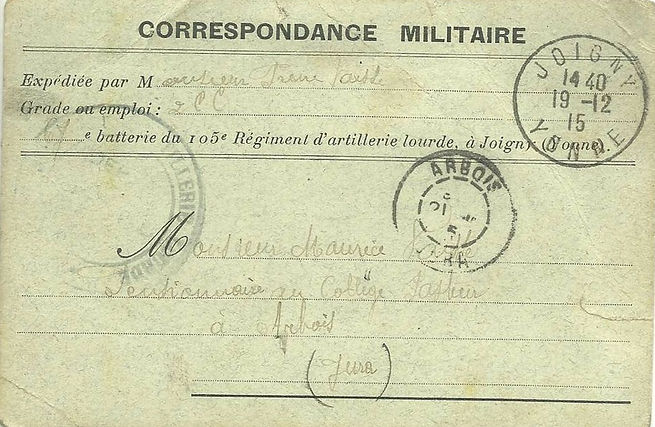 CORRESPONDANCE MILITAIRE
Expédiée par M
Grade ou emploi : 2 CC
e batterie du 105e Régiment d'artillerie lourde, à Joigny (Yonne).
JOIGNY
14 40
19 -12
15
YONNE
ARBOIS
Monsieur Maurice
Pensionnaire au Collège Pasteur
à Arbois
(Jura)